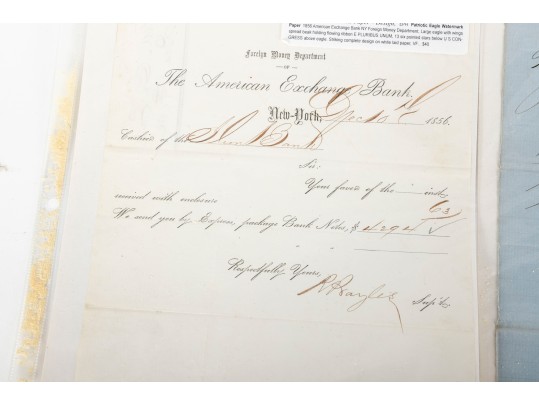 Patriotic Eagle Watermark
Paper 1856 American Exchange Bank NY Foreign Money Department. Large eagle with wings
spread beak holding flowing ribbon E PLURIBUS UNUM, 13 six pointed stars below U S CON-
GRESS above eagle. Striking complete design on white laid paper. VF. $40
Foreign Money Department
OF
The American Exchange Bank,
New-York, Dec 10 1856.
Cashier of the Bank
Sir:
Your favor of the inst.
received with enclosure
63
We send you by Express, package Bank Notes, $ 4294
Respectfully Yours,
Sup't.